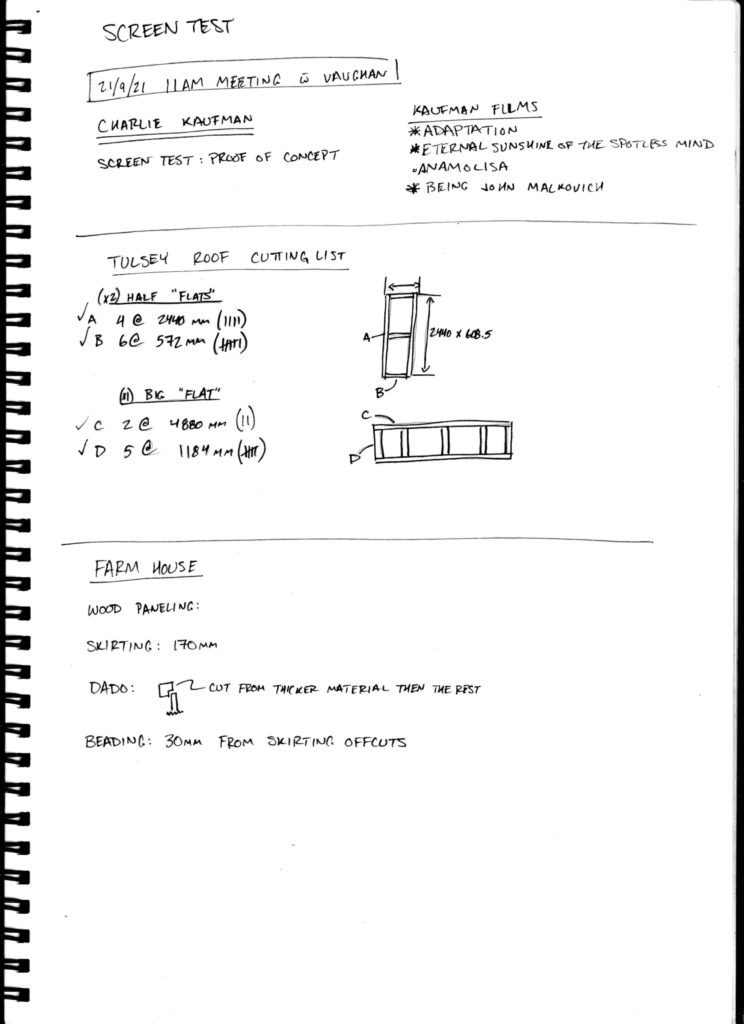 SCREEN TEST
21/9/21 11AM MEETING W̄ VAUGHAN
CHARLIE KAUFMAN
SCREEN TEST: PROOF OF CONCEPT
KAUFMAN FILMS
* ADAPTATION
* ETERNAL SUNSHINE OF THE SPOTLESS MIND
• ANAMOLISA
* BEING JOHN MALKOVICH
TULSEY ROOF CUTTING LIST
(x2) HALF "FLATS"
✓ A 4 @ 2440 MM (||||)
✓ B 6 @ 572 MM (卌|)
A
2440 x 608.5
B
(1) BIG "FLAT"
✓ C 2 @ 4880 MM (||)
✓ D 5 @ 1184 MM (卌)
C
D
FARM HOUSE
WOOD PANELING:
SKIRTING: 170MM
DADO: CUT FROM THICKER MATERIAL THEN THE REST
BEADING: 30MM FROM SKIRTING OFFCUTS